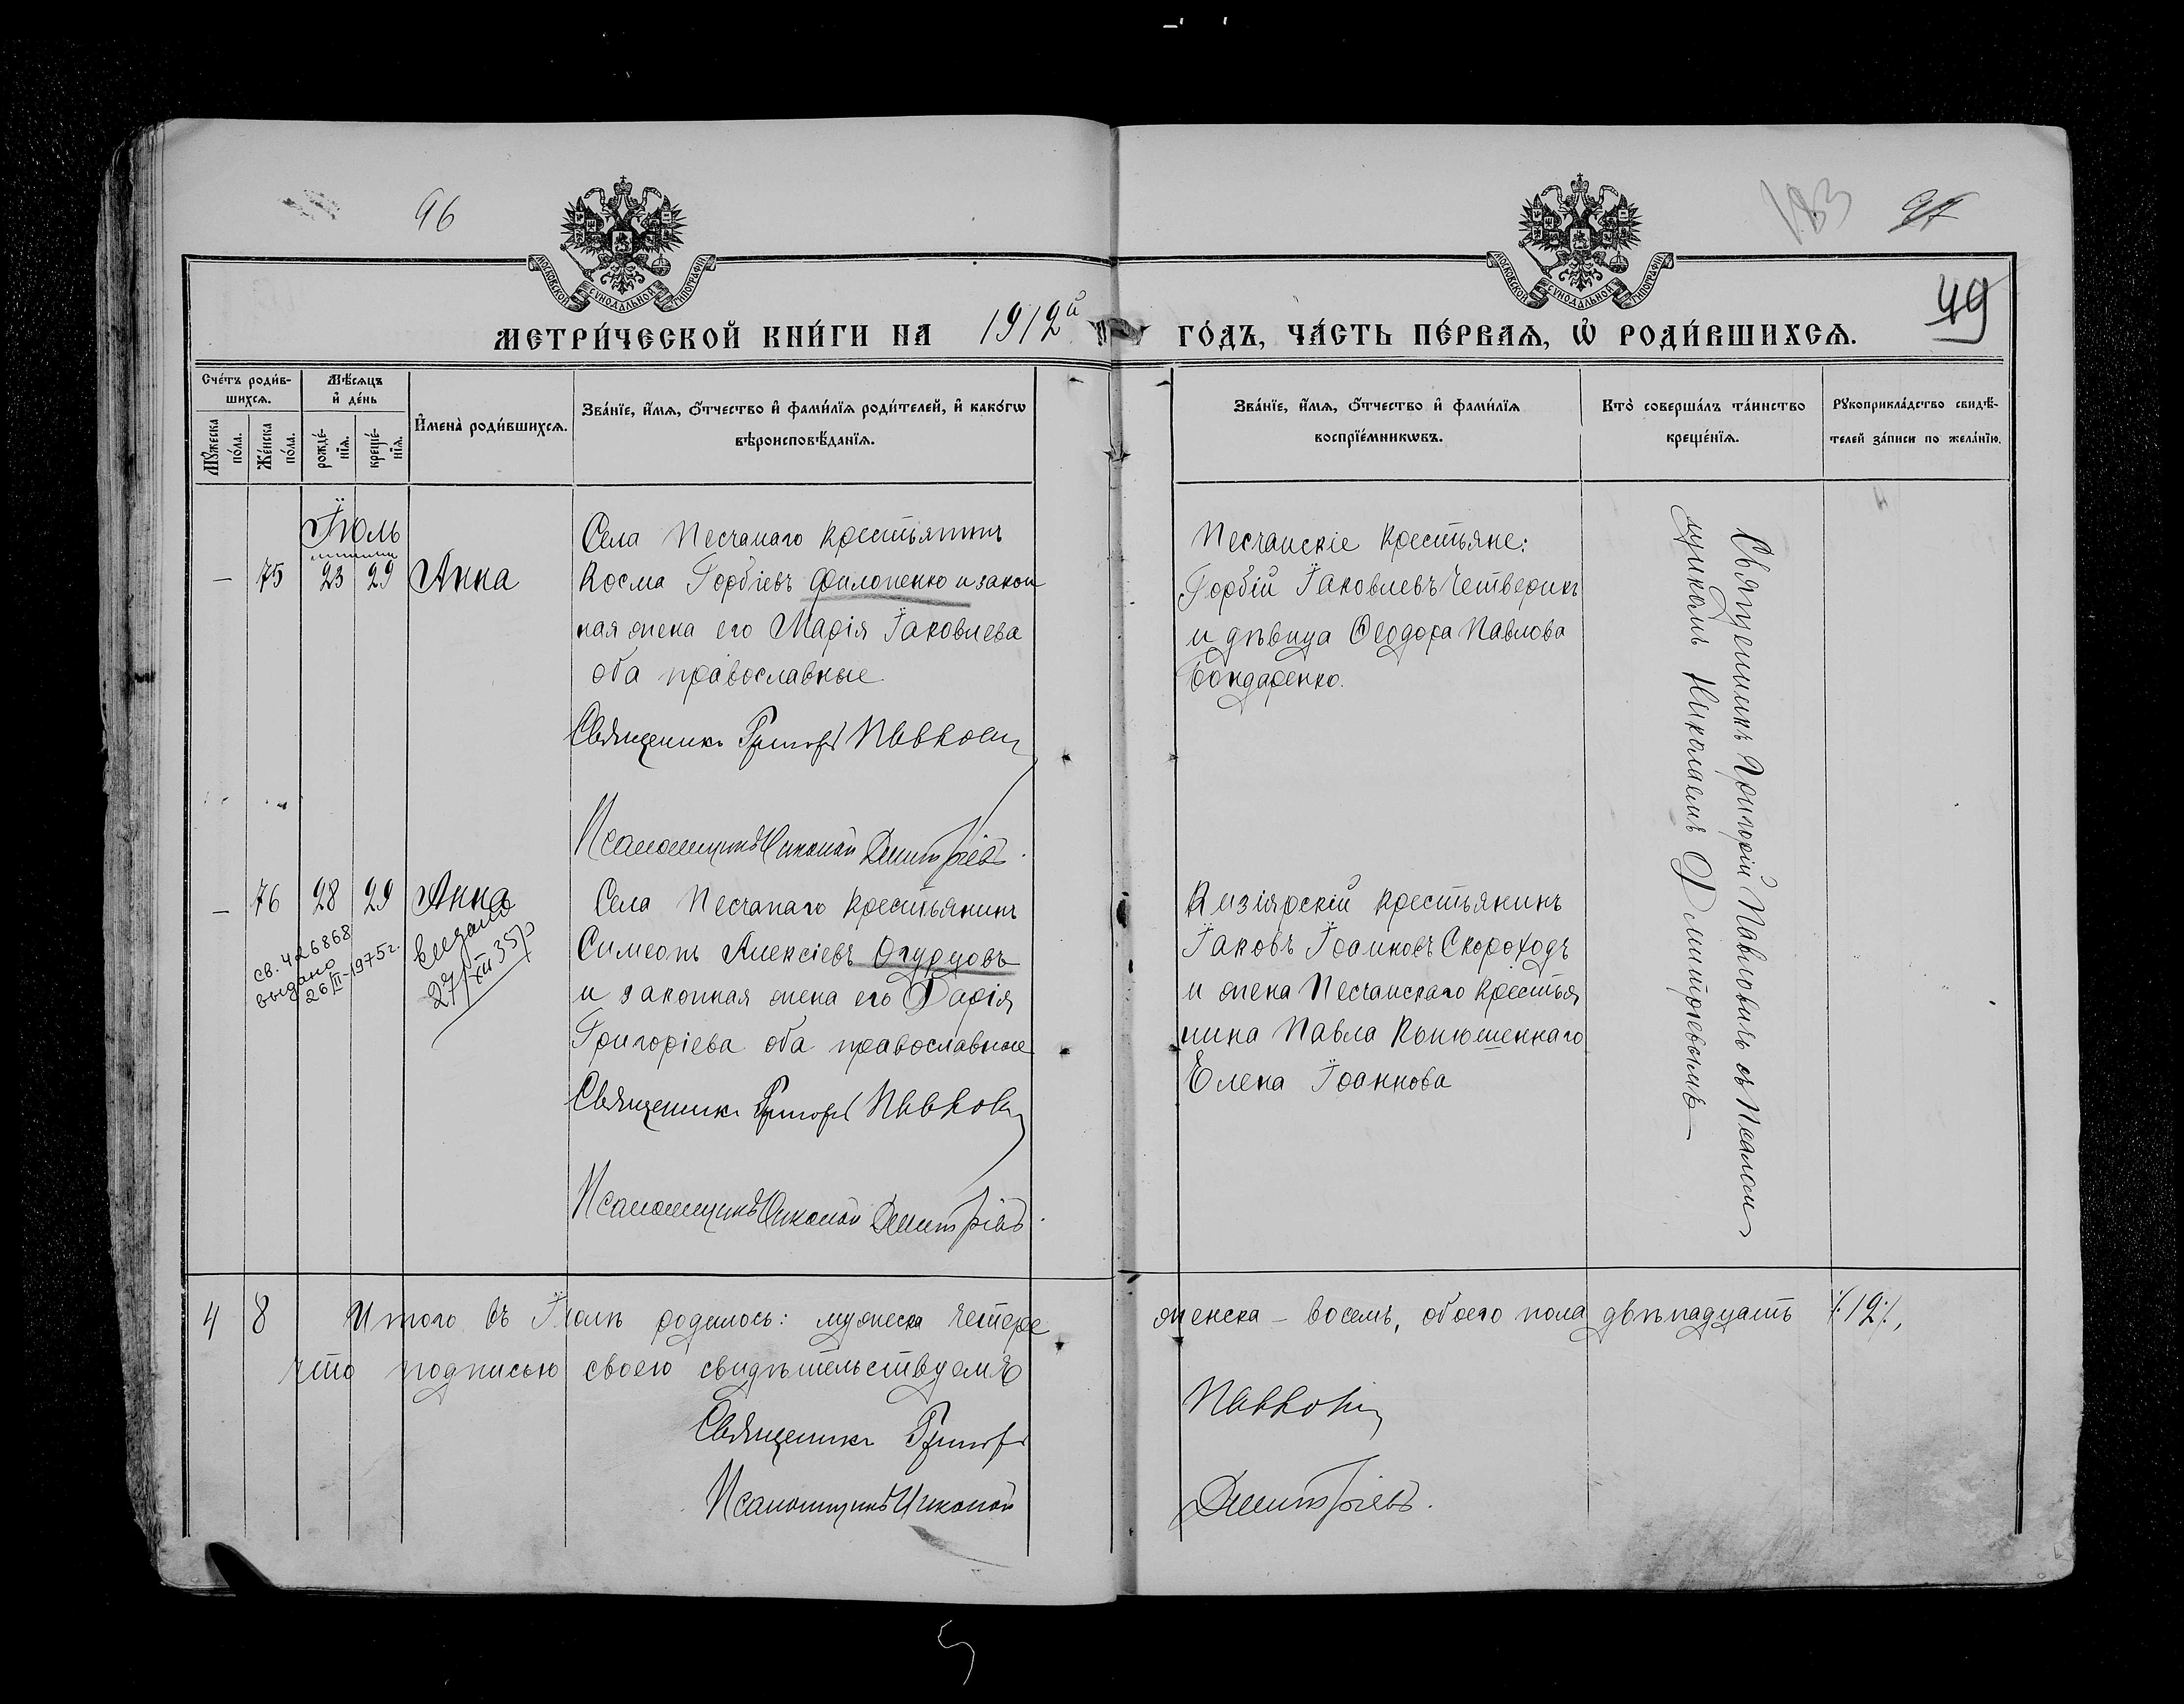 96
183
97
49
МОСКОВСКОЙ СУНОДАЛЬНОЙ ТИПОГРАФІИ
МОСКОВСКОЙ СУНОДАЛЬНОЙ ТИПОГРАФІИ
МЕТРИ́ЧЕСКОЙ КНИ́ГИ НА 1912й ГО́ДЪ, ЧА́СТЬ ПЕ́РВАѦ, Ѡ҆ РОДИ́ВШИХСѦ.
Сче́тъ роди́в-
шихсѧ.
Мѣ́сѧцъ
и҆ де́нь
Мꙋ́жеска
по́ла.
Же́нска
по́ла.
рожде́-
нїѧ.
креще́-
нїѧ.
И҆мена̀ роди́вшихсѧ.
Зва́нїе, и҆́мѧ, ѻ҆́тчество и҆ фами́лїѧ роди́телей, и҆ како́гѡ
вѣроисповѣ́данїѧ.
Зва́нїе, и҆́мѧ, ѻ҆́тчество и҆ фами́лїѧ
воспрїе́мникѡвъ.
Кто̀ соверша́лъ та́инство
креще́нїѧ.
Рꙋкоприкла́дство свидѣ́-
телей за́писи по жела́нїю.
Іюль
— 75 23 29 Анна
Села Песчанаго крестьянинъ
Косма Гордіевъ Филопенко и закон
ная жена его Марія Іаковлева
оба православные
Священникъ Григорій Павлович
Псаломщикъ Николай Дмитріевъ.
Песчанскіе крестьяне:
Гордій Іаковлевъ Четверикъ
и дѣвица Ѳеодора Павлова
Бондаренко.
Священникъ Григорій Павловичъ съ Псалом
щикомъ Николаемъ Дмитріевымъ
— 76 28 29 Анна
св. 426868
выдано
26/II-1975г.
выдано
27/XII 35р
Села Песчанаго крестьянинъ
Симеонъ Алексіевъ Огурцовъ
и законная жена его Дарія
Григоріева оба православные
Священникъ Григорій Павлович
Псаломщикъ Николай Дмитріевъ.
Кизіярскій крестьянинъ
Іаковъ Іоанновъ Скороходъ
и жена Песчанскаго крестья
нина Павла Конюшеннаго
Елена Іоаннова
4 8 Итого въ Іюлѣ родилось: мужеска четыре женска – восемь, обоего пола двѣнадцать /:12:/,
что подписью своею свидѣтельствуемъ
Священникъ Григорій Павлович
Псаломщикъ Николай Дмитріевъ.